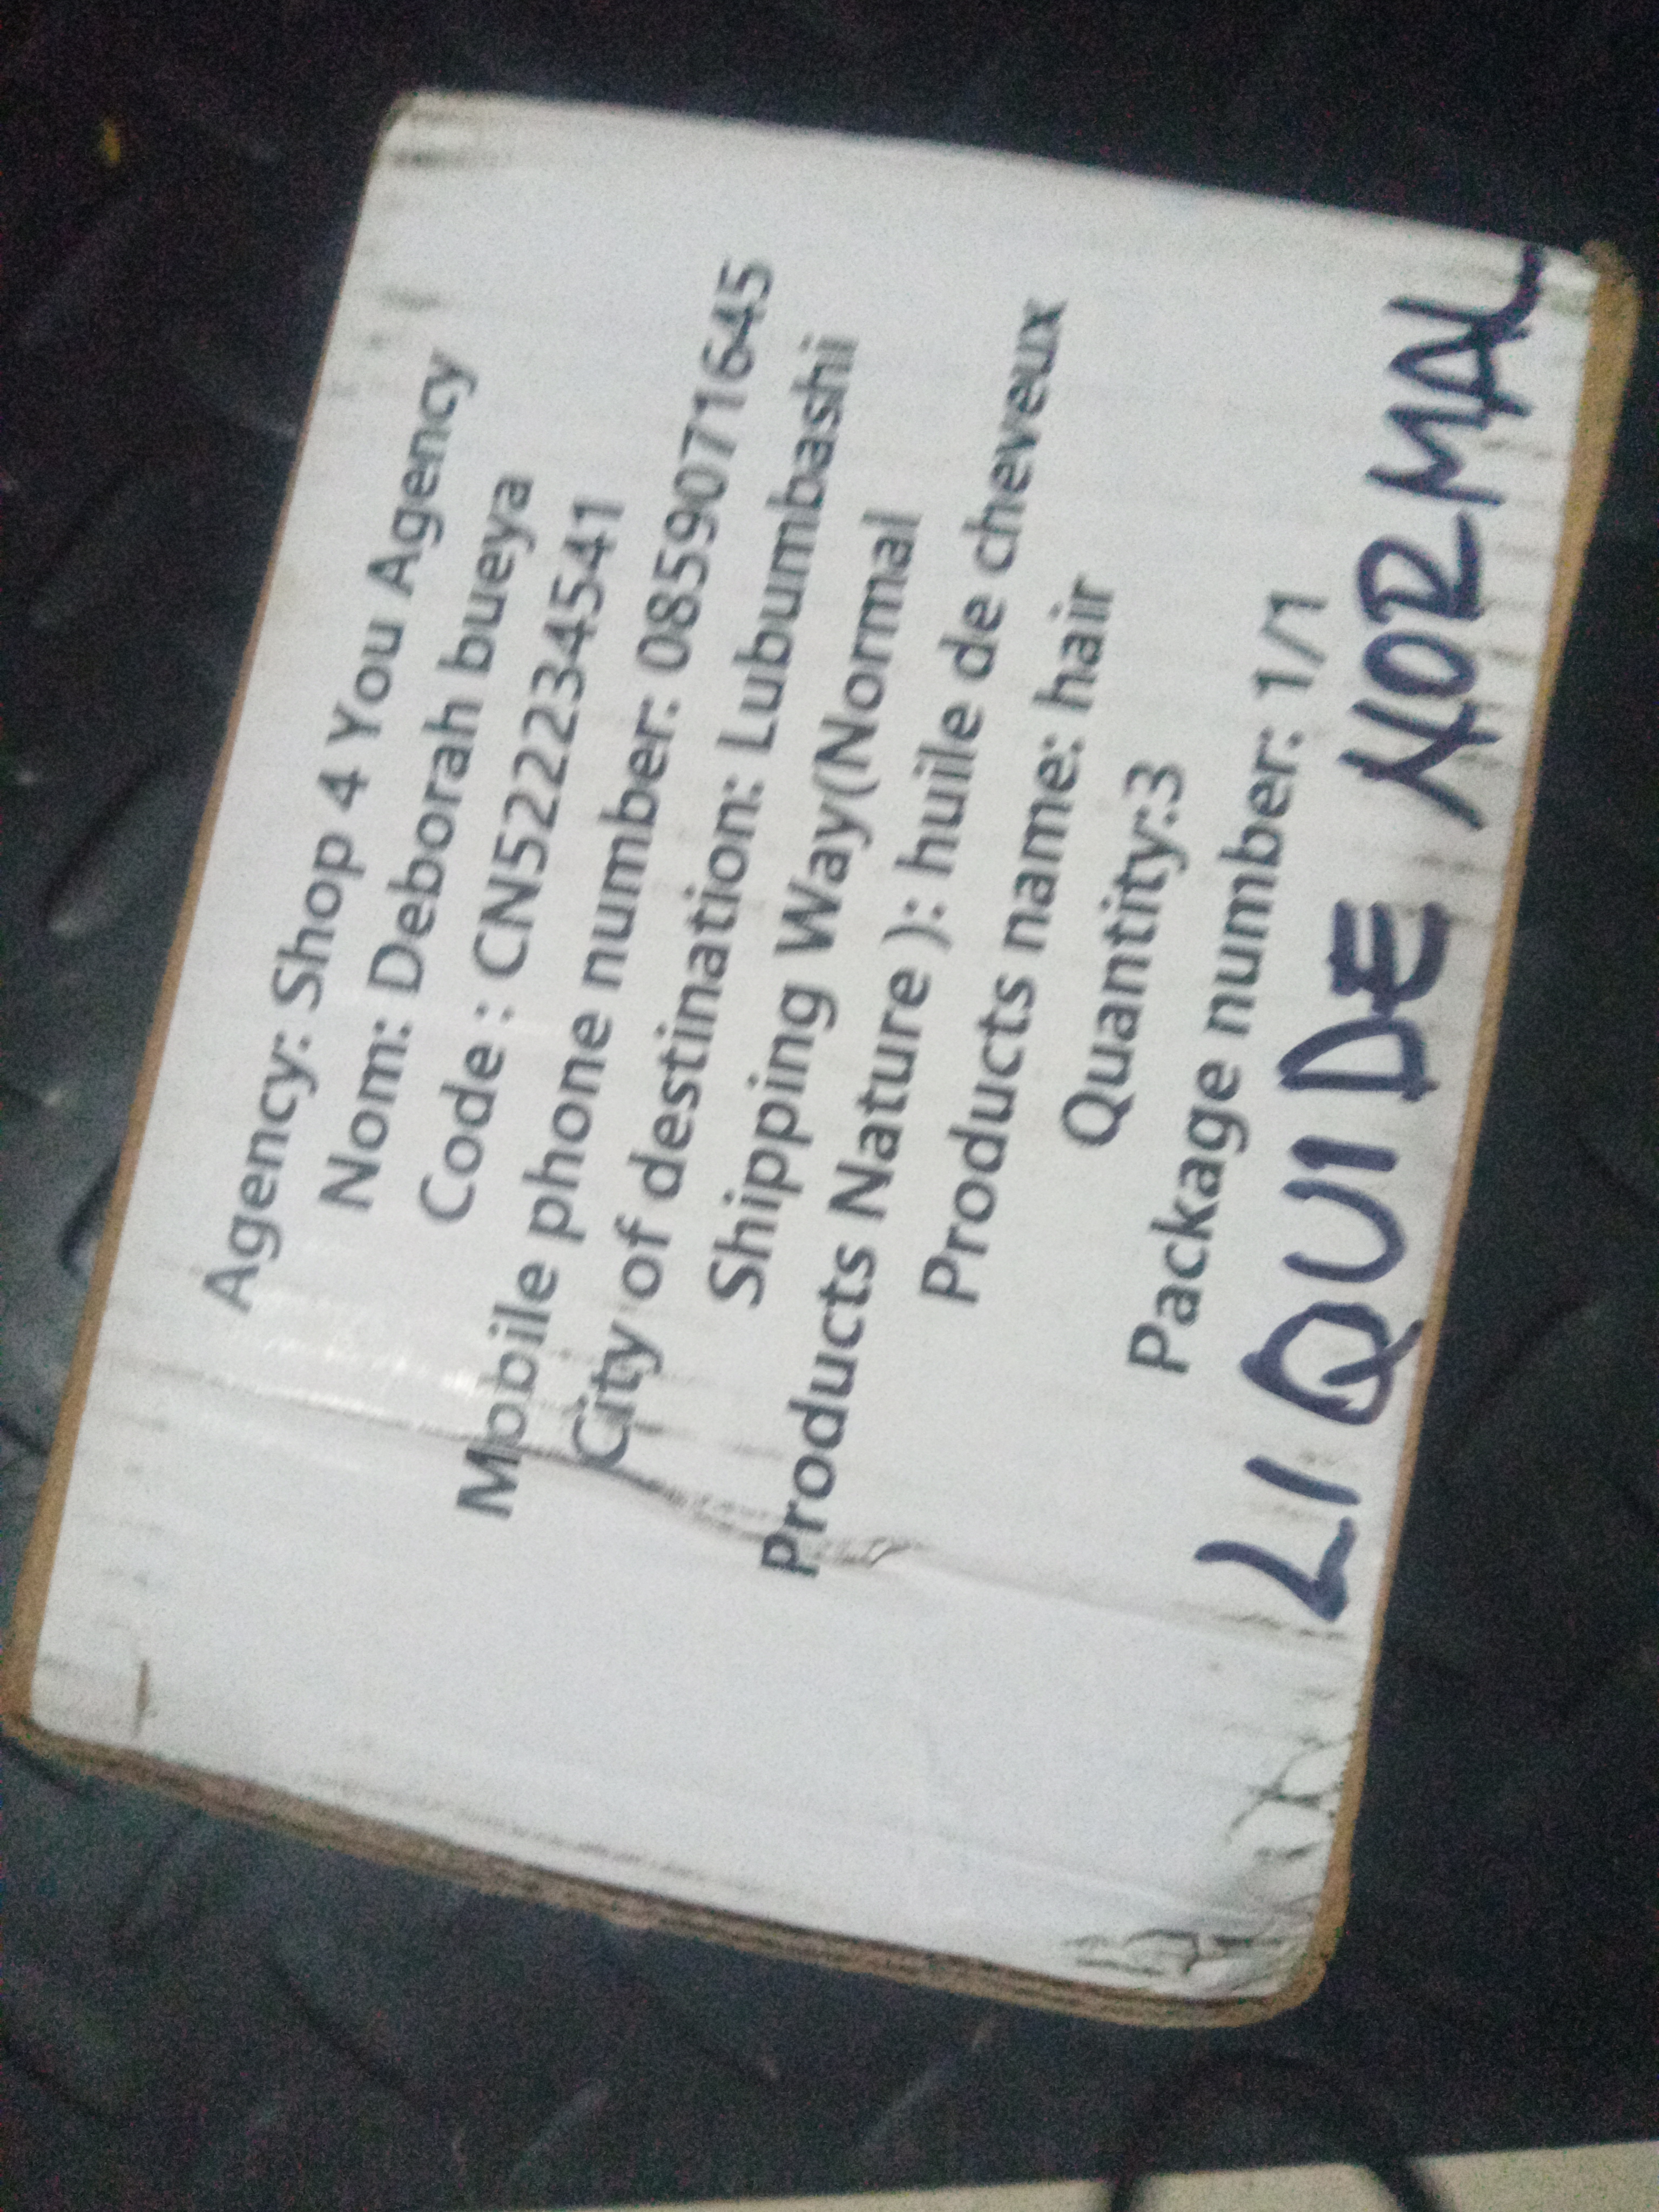 Agency: Shop 4 You Agency
Nom: Deborah bueya
Code : CN5222345541
Mobile phone number: 0859071645
City of destination: Lubumbashi
Shipping Way(Normal
Products Nature ): huile de cheveux
Products name: hair
Quantity:3
Package number: 1/1
LIQUIDE NORMAL